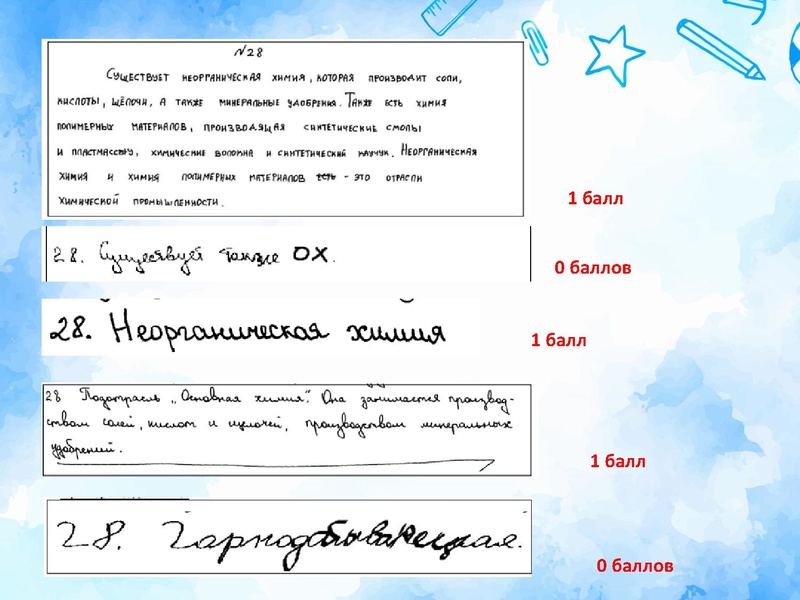 №28
Существует неорганическая химия, которая производит соли,
кислоты, щёлочи, а также минеральные удобрения. Также есть химия
полимерных материалов, производящая синтетические смолы
и пластмассу, химические волокна и синтетический каучук. Неорганическая
химия и химия полимерных материалов есть - это отрасли
химической промышленности.
1 балл
28. Существует также ОХ.
0 баллов
28. Неорганическая химия
1 балл
28 Подотрасль „Основная химия". Она занимается производ-
ством солей, кислот и щелочей, производством минеральных
удобрений.
1 балл
28. Горнодобывающая.
0 баллов